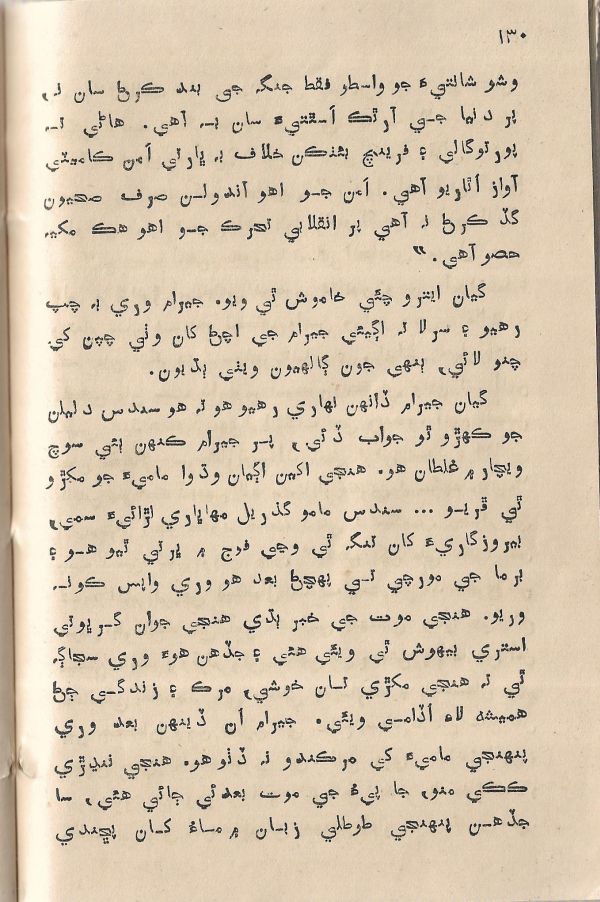 ١٣٠
وشو شانتيءَ جو واسطو فقط جنگ جي بند ڪرڻ سان نہ,
پر دنيا جي آرٿڪ اَستتيءَ سان بہ آهي. هاڻي تہ
پورٽوگالي ۽ فرينچ بئنڪن خلاف بہ ڀارتي اَمن ڪاميٽي
آواز اُٿاريو آهي. اَمن جو اهو آندولن صرف صحيون
گڏ ڪرڻ نہ آهي پر انقلابي تحرڪ جو اهو هڪ مکيہ
حصو آهي.”
گيان ايترو چئي خاموش ٿي ويو. جيرام وري بہ چپ
رهيو ۽ سرلا تہ اڳيئي جيرام جي اچڻ کان وٺي چپن کي
چنو لائي, ٻنهي جون ڳالهيون ويٺي ٻڌيون.
گيان جيرام ڏانهن نهاري رهيو هو تہ هو سندس دليلن
جو ڪهڙو ٿو جواب ڏئي, پر جيرام ڪنهن ٻئي سوچ
ويچار ۾ غلطان هو. هنجي اکين اڳيان وڌوا ماميءَ جو مکڙو
ٿي ڦريو ... سندس مامو گذريل مهاڀاري لڙائيءَ سمي,
بيروزگاريءَ کان تنگ ٿي وڃي فوج ۾ ڀرتي ٿيو هو ۽
برما جي مورچي تي پهچڻ بعد هو وري واپس ڪونہ
وريو. هنجي موت جي خبر ٻڌي هنجي جوان گرڀوتي
استري بيهوش ٿي ويئي هئي ۽ جڏهن هوءَ وري سجاڳ
ٿي تہ هنجي مکڙي تان خوشي, مرڪ ۽ زندگي ڄڻ
هميشہ لاءِ اُڏامي ويئي. جيرام اُن ڏينهن بعد وري
پنهنجي ماميءَ کي مرڪندو نہ ڏٺو هو. هنجي ننڍڙي
ڪڪي منو, جا پيءُ جي موت بعد ئي ڄائي هئي, سا
جڏهن پنهنجي طوطلي زبان ۾ ماءُ کان پڇندي